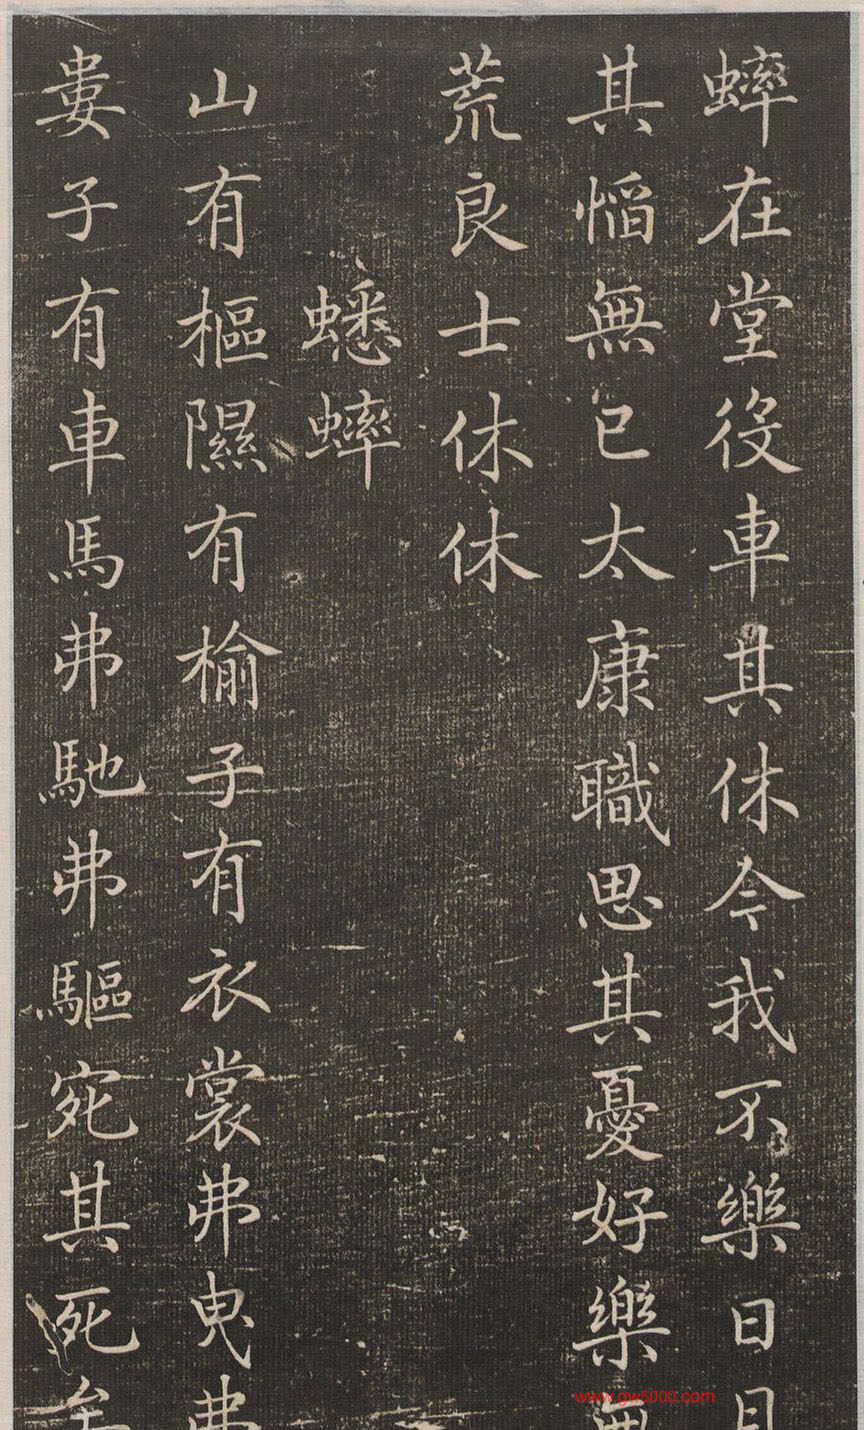 蟀在堂役車其休今我不樂日月
其慆無已太康職思其憂好樂無
荒良士休休
蟋蟀
山有樞隰有榆子有衣裳弗曳弗
婁子有車馬弗馳弗驅宛其死矣
www.gw5000.com